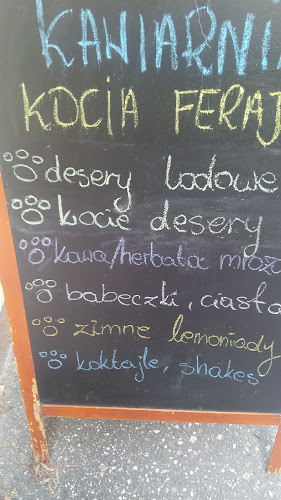 KAWIARNI
KOCIA FERAJ
desery lodowe
kocie desery
kawa/herbata mrożo
babeczki, ciasta
zimne lemoniady
koktajle, shakes